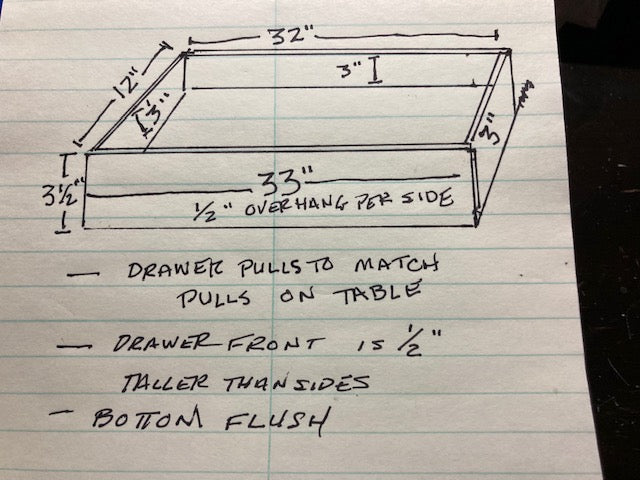 32"
12"
3"
3"
3"
3½"
33"
½" OVERHANG PER SIDE
— DRAWER PULLS TO MATCH
PULLS ON TABLE
— DRAWER FRONT IS ½"
TALLER THAN SIDES
— BOTTOM FLUSH